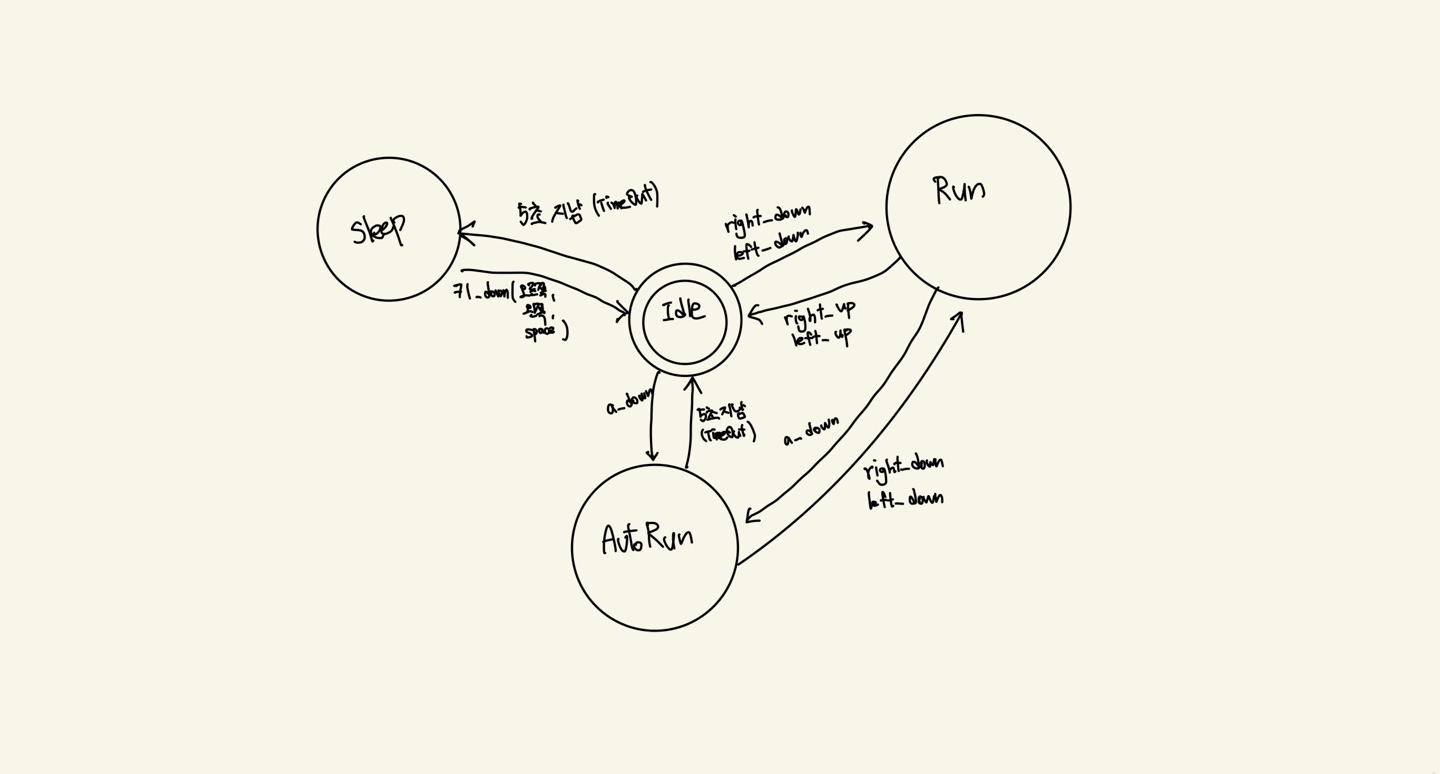 Sleep
5초 지남 (TimeOut)
키_down(오른쪽,
왼쪽,
space)
Idle
right_down
left_down
Run
right_up
left_up
a_down
5초 지남
(TimeOut)
a_down
right_down
left_down
AutoRun